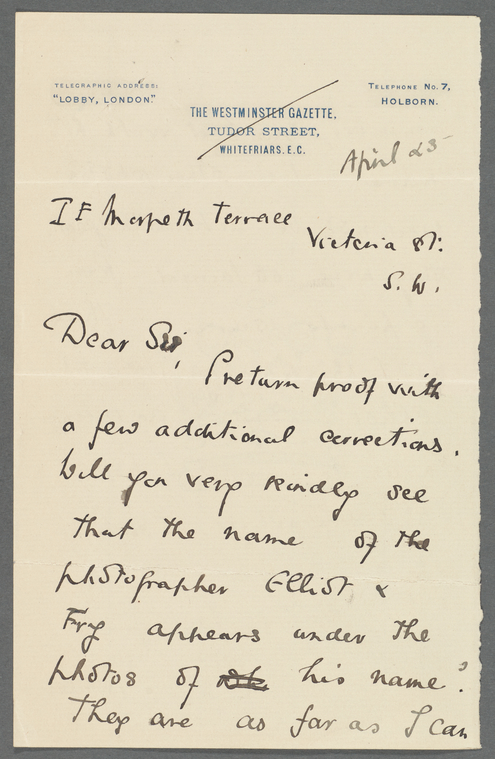 TELEGRAPHIC ADDRESS:
"LOBBY, LONDON."
TELEPHONE NO. 7,
HOLBORN.
THE WESTMINSTER GAZETTE,
TUDOR STREET,
WHITEFRIARS. E.C.
April 25
Morpeth Terrace
Victoria St:
S. W.
Dear Sir,
I return proof with
a few additional corrections.
Will you very kindly see
that the name of the
photographer Elliot &
Fry appears under the
photos of his name?
They are as far as I can